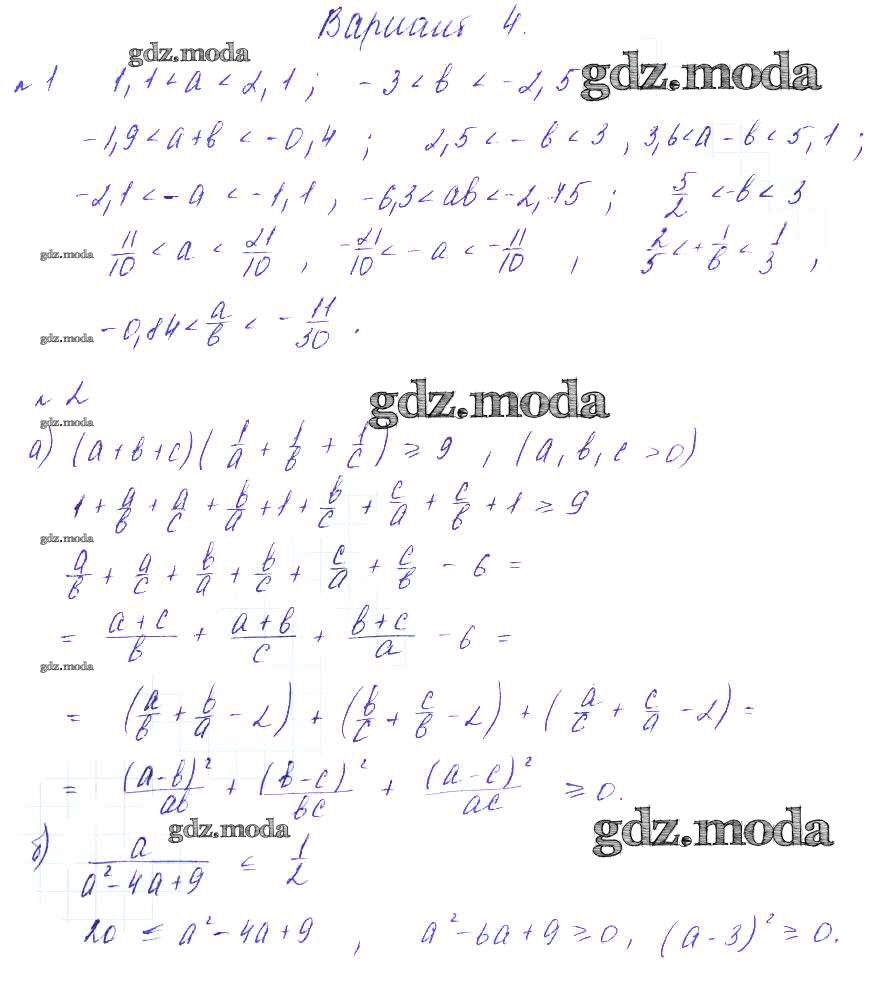 Вариант 4.
gdz.moda
№1 1,1 < a < 2,1 ; -3 < b < -2,5 gdz.moda
-1,9 < a+b < -0,4 ; 2,5 < -b < 3 , 3,6 < a - b < 5,1 ;
-2,1 < -a < -1,1 , -6,3 < ab < -2,75 ; 5/2 < -b < 3
gdz.moda 11/10 < a < 21/10 , -21/10 < -a < -11/10 , 2/5 < + 1/b < 1/3 ,
gdz.moda -0,84 < a/b < - 11/30 .
№2 gdz.moda
gdz.moda
а) (a+b+c)(1/a + 1/b + 1/c) ≥ 9 , (a, b, c > 0)
1 + a/b + a/c + b/a + 1 + b/c + c/a + c/b + 1 ≥ 9
gdz.moda
a/b + a/c + b/a + b/c + c/a + c/b - 6 =
= (a+c)/b + (a+b)/c + (b+c)/a - 6 =
gdz.moda
= (a/b + b/a - 2) + (b/c + c/b - 2) + (a/c + c/a - 2) =
= (a-b)²/ab + (b-c)²/bc + (a-c)²/ac ≥ 0.
gdz.moda gdz.moda
б) a/(a²-4a+9) ≤ 1/2
20 ≤ a²-4a+9 , a²-6a+9 ≥ 0, (a-3)² ≥ 0.